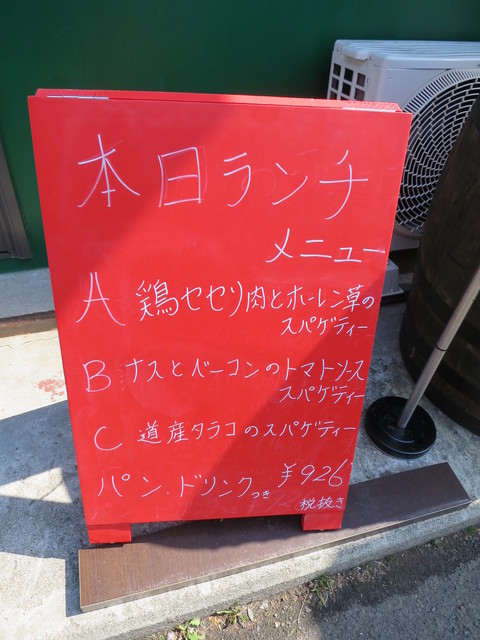 本日ランチ
メニュー
A 鶏セセリ肉とホーレン草の
スパゲティー
B ナスとベーコンのトマトソース
スパゲティー
C 道産タラコのスパゲティー
パン.ドリンクつき ¥926
税抜き